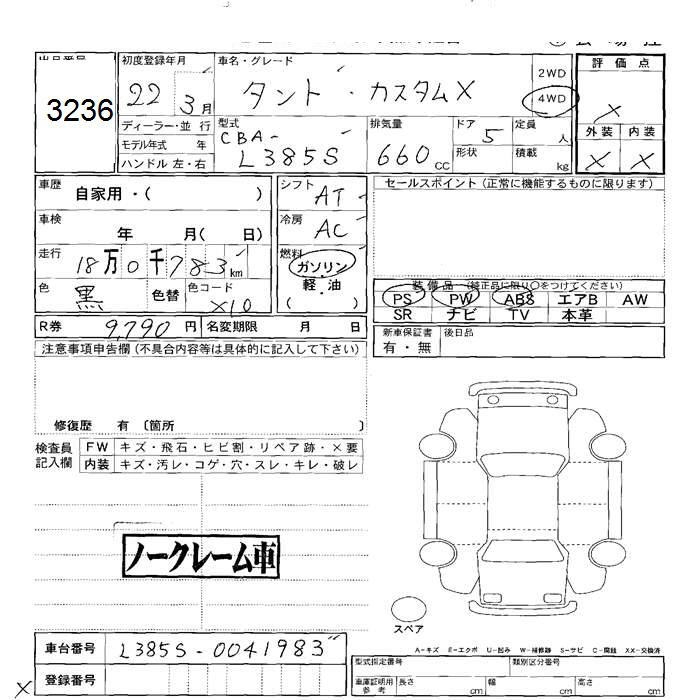 出品番号
3236
初度登録年月
22 3月
ディーラー・並 行
モデル年式 年
ハンドル 左・右
車名・グレード
タント・カスタムX
2WD
4WD
型式
CBA-
L385S
排気量
660 CC
ドア 5
形状
定員 人
積載 kg
評 価 点
×
外 装 内 装
× ×
車歴
自家用・( )
車検
年 月( 日)
走行
18万0千783km
色
黒 色替
色コード
X10
シフト
AT
冷房
AC
燃料
ガソリン
軽・油
( )
セールスポイント (正常に機能するものに限ります)
装 備 品 (純正品に限り〇をつけてください)
PS PW ABS エアB AW
SR ナビ TV 本革
新車保証書
有・無
後日品
R券 9,790 円 名変期限 月 日
注意事項申告欄 (不具合内容等は具体的に記入して下さい)
修復歴 有 〔箇所 〕
検査員
記入欄
FW キズ・飛石・ヒビ割・リペア跡・×要
内装 キズ・汚レ・コゲ・穴・スレ・キレ・破レ
ノークレーム車
スペア
A-キズ E-エクボ U-凹み W-補修跡 S-サビ C-腐蝕 XX-交換済
車台番号 L385S-0041983
登録番号
×
型式指定番号 類別区分番号
車庫証明用
参 考
長さ cm 幅 cm 高さ cm